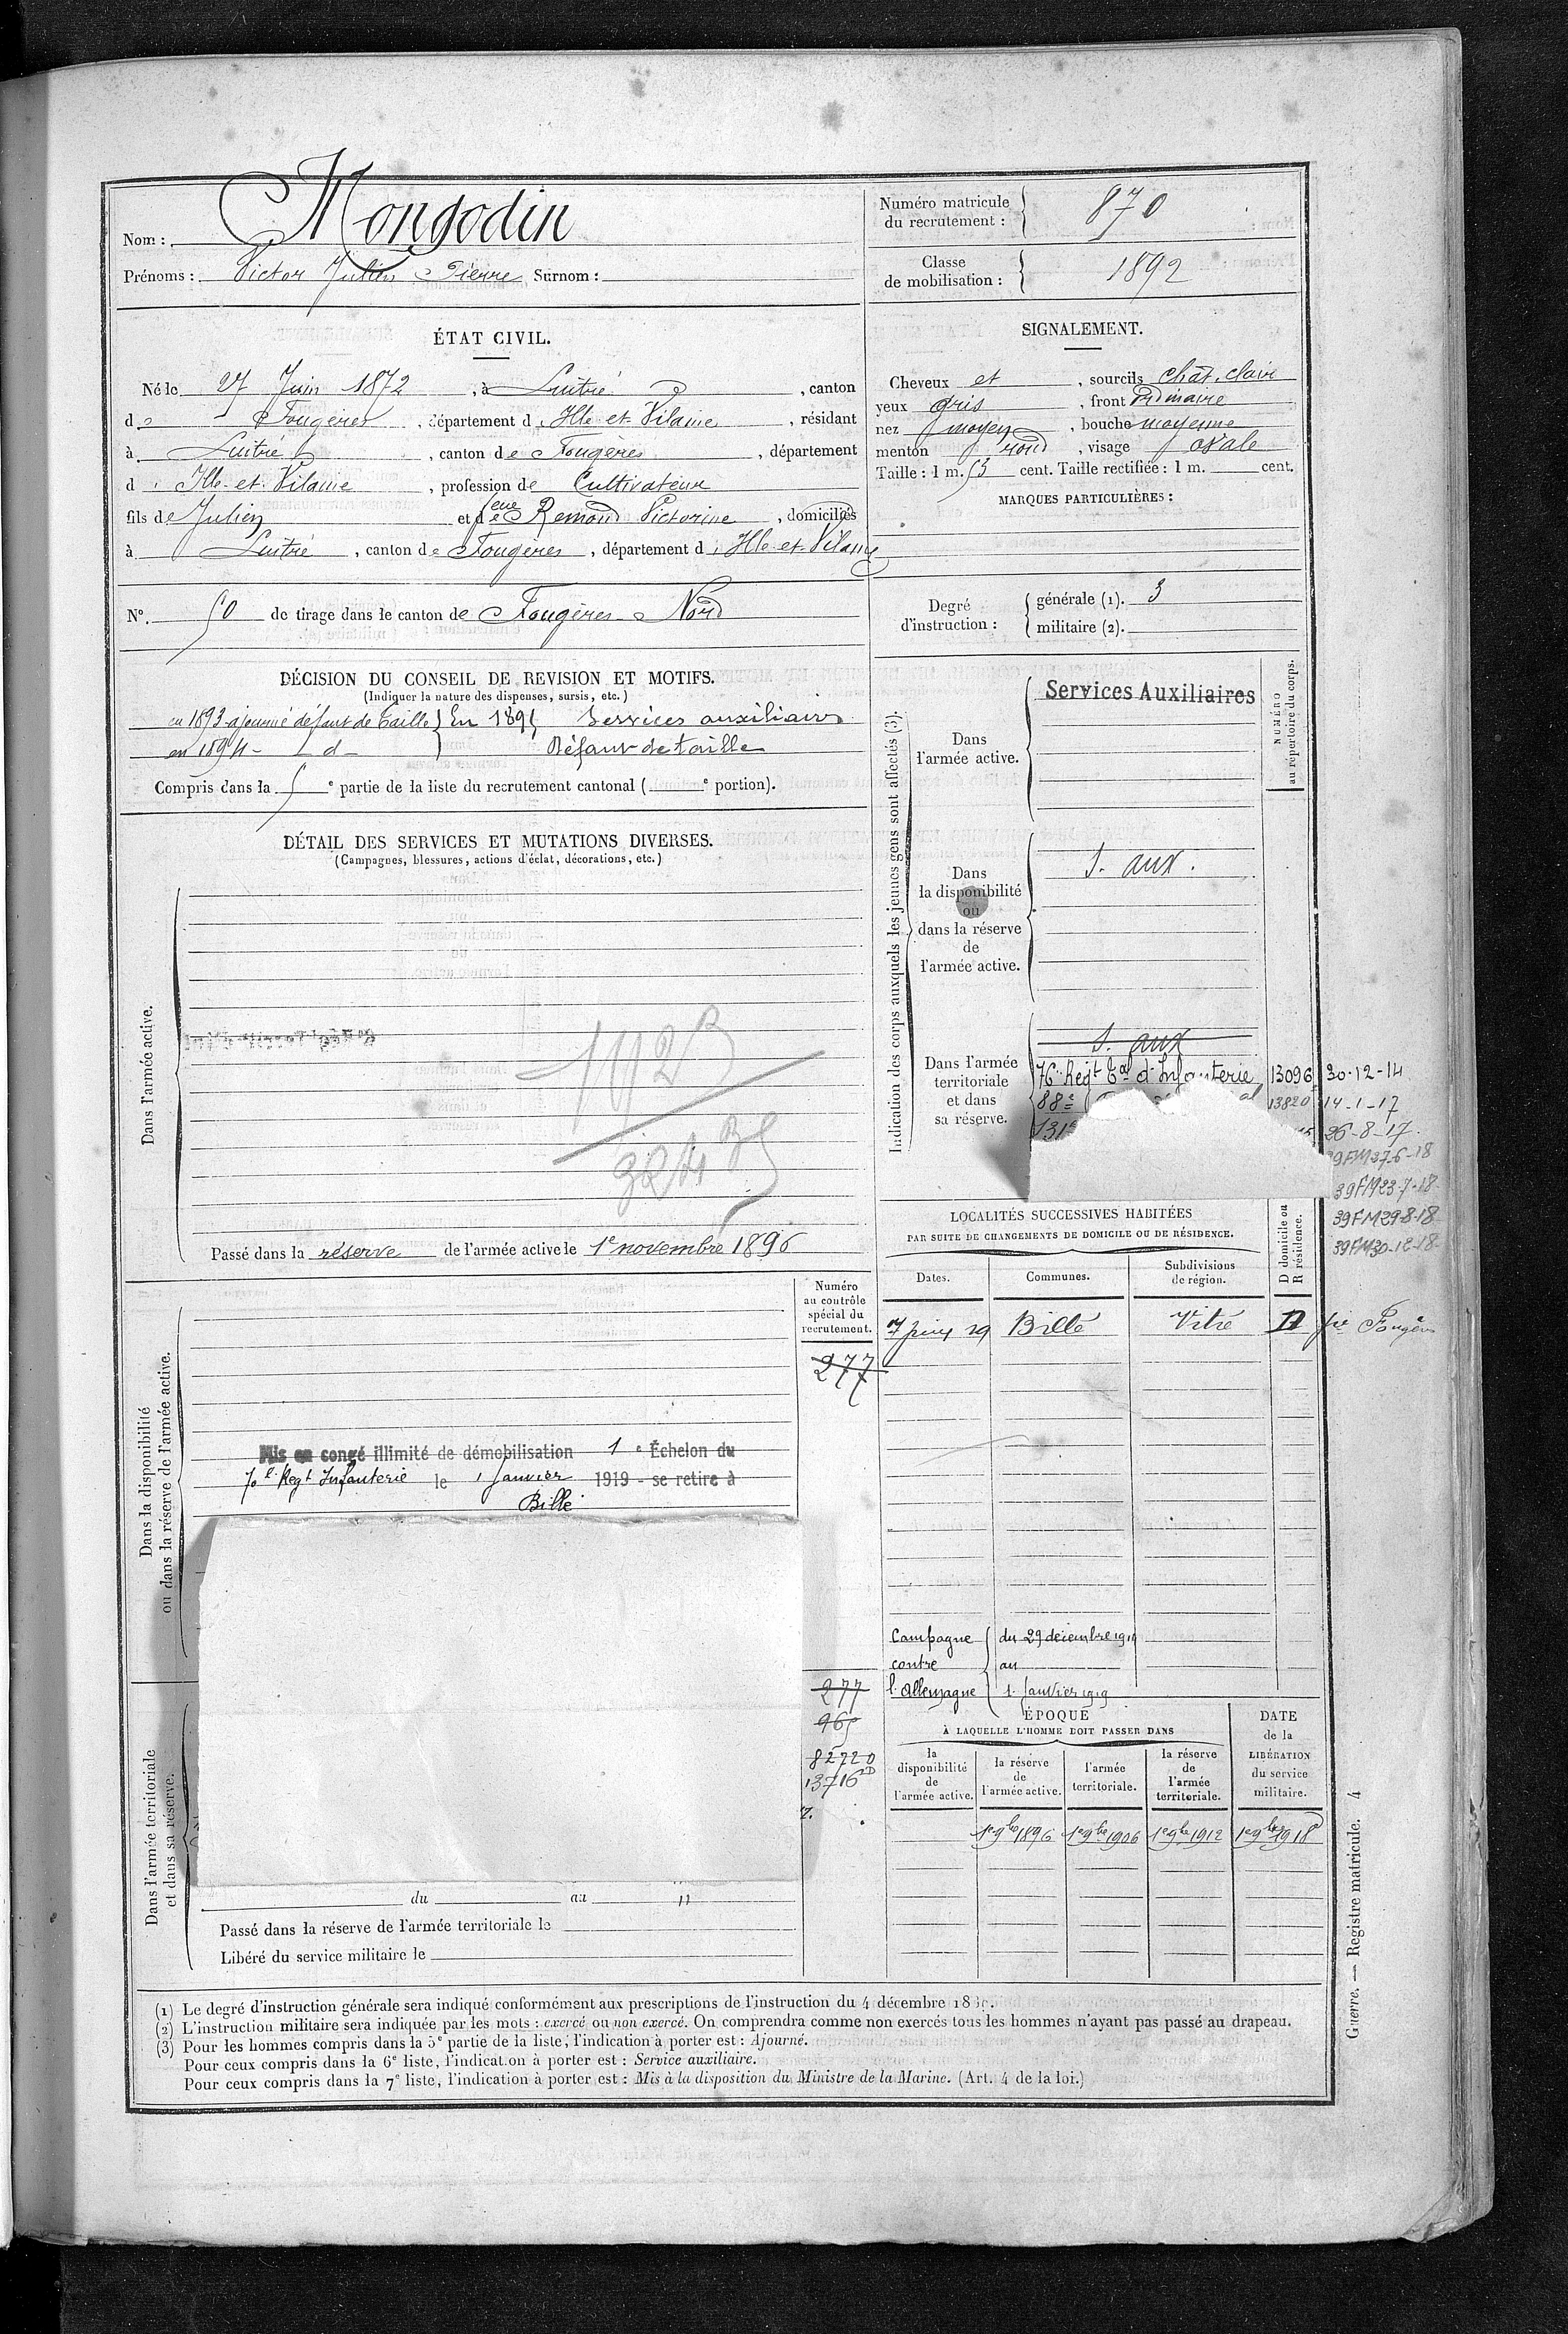 Nom : Mongodin
Prénoms : Victor Julien Pierre Surnom :
Numéro matricule du recrutement : 870
Classe de mobilisation : 1892
ÉTAT CIVIL.
Né le 27 Juin 1872, à Luitré, canton
de Fougères, département d Ille-et-Vilaine, résidant
à Luitré, canton de Fougères, département
d Ille-et-Vilaine, profession de Cultivateur
fils de Julien et de feue Remond Victorine, domiciliés
à Luitré, canton de Fougères, département d Ille-et-Vilaine
SIGNALEMENT.
Cheveux et, sourcils chât. clair
yeux gris, front ordinaire
nez moyen, bouche moyenne
menton rond, visage ovale
Taille : 1 m. 53 cent. Taille rectifiée : 1 m. cent.
MARQUES PARTICULIÈRES :
N° 50 de tirage dans le canton de Fougères-Nord
Degré d'instruction :
générale (1). 3
militaire (2).
DÉCISION DU CONSEIL DE REVISION ET MOTIFS.
(Indiquer la nature des dispenses, sursis, etc.)
en 1893 ajourné défaut de taille } En 1895 Services auxiliaires
en 1894 - d - Défaut de taille
Compris dans la 5e partie de la liste du recrutement cantonal ( e portion).
DÉTAIL DES SERVICES ET MUTATIONS DIVERSES.
(Campagnes, blessures, actions d'éclat, décorations, etc.)
Dans l'armée active.
1123
324
Passé dans la réserve de l'armée active le 1e novembre 1896
Indication des corps auxquels les jeunes gens sont affectés (3).
NUMÉRO
au répertoire du corps.
Dans
l'armée active.
Services Auxiliaires
Dans
la disponibilité
ou
dans la réserve
de
l'armée active.
S. aux.
Dans l'armée
territoriale
et dans
sa réserve.
S. aux
76e Regt Tal d'Infanterie 13096 30-12-14
88e 13820 14-1-17
131e 26-8-17
39FM27-6-18
39FM23-7-18
39FM29-8-18
39FM30-12-18
LOCALITÉS SUCCESSIVES HABITÉES
PAR SUITE DE CHANGEMENTS DE DOMICILE OU DE RÉSIDENCE.
Dates.
Communes.
Subdivisions
de région.
D domicile ou
R résidence.
7 19 Billé Vitré D Fougères
Dans la disponibilité
ou dans la réserve de l'armée active.
Numéro
au contrôle
spécial du
recrutement.
277
Mis en congé illimité de démobilisation 1e Échelon du
70e Regt Infanterie le 1 Janvier 1919 - se retire à
Billé
Campagne
contre
l'Allemagne
du 29 décembre 1914
au
1 Janvier 1919
Dans l'armée territoriale
et dans sa réserve.
277
965
82720
13716
ÉPOQUE
À LAQUELLE L'HOMME DOIT PASSER DANS
la
disponibilité
de
l'armée active.
la réserve
de
l'armée active.
l'armée
territoriale.
la réserve
de
l'armée
territoriale.
DATE
de la
LIBÉRATION
du service
militaire.
1e 9bre 1896 1e 9bre 1906 1e 9bre 1912 1e 9bre 1918
du au
Passé dans la réserve de l'armée territoriale le
Libéré du service militaire le
(1) Le degré d'instruction générale sera indiqué conformément aux prescriptions de l'instruction du 4 décembre
(2) L'instruction militaire sera indiquée par les mots : exercé ou non exercé. On comprendra comme non exercés tous les hommes n'ayant pas passé au drapeau.
(3) Pour les hommes compris dans la 5e partie de la liste, l'indication à porter est : Ajourné.
Pour ceux compris dans la 6e liste, l'indication à porter est : Service auxiliaire.
Pour ceux compris dans la 7e liste, l'indication à porter est : Mis à la disposition du Ministre de la Marine. (Art. 4 de la loi.)
Guerre. — Registre matricule. 4